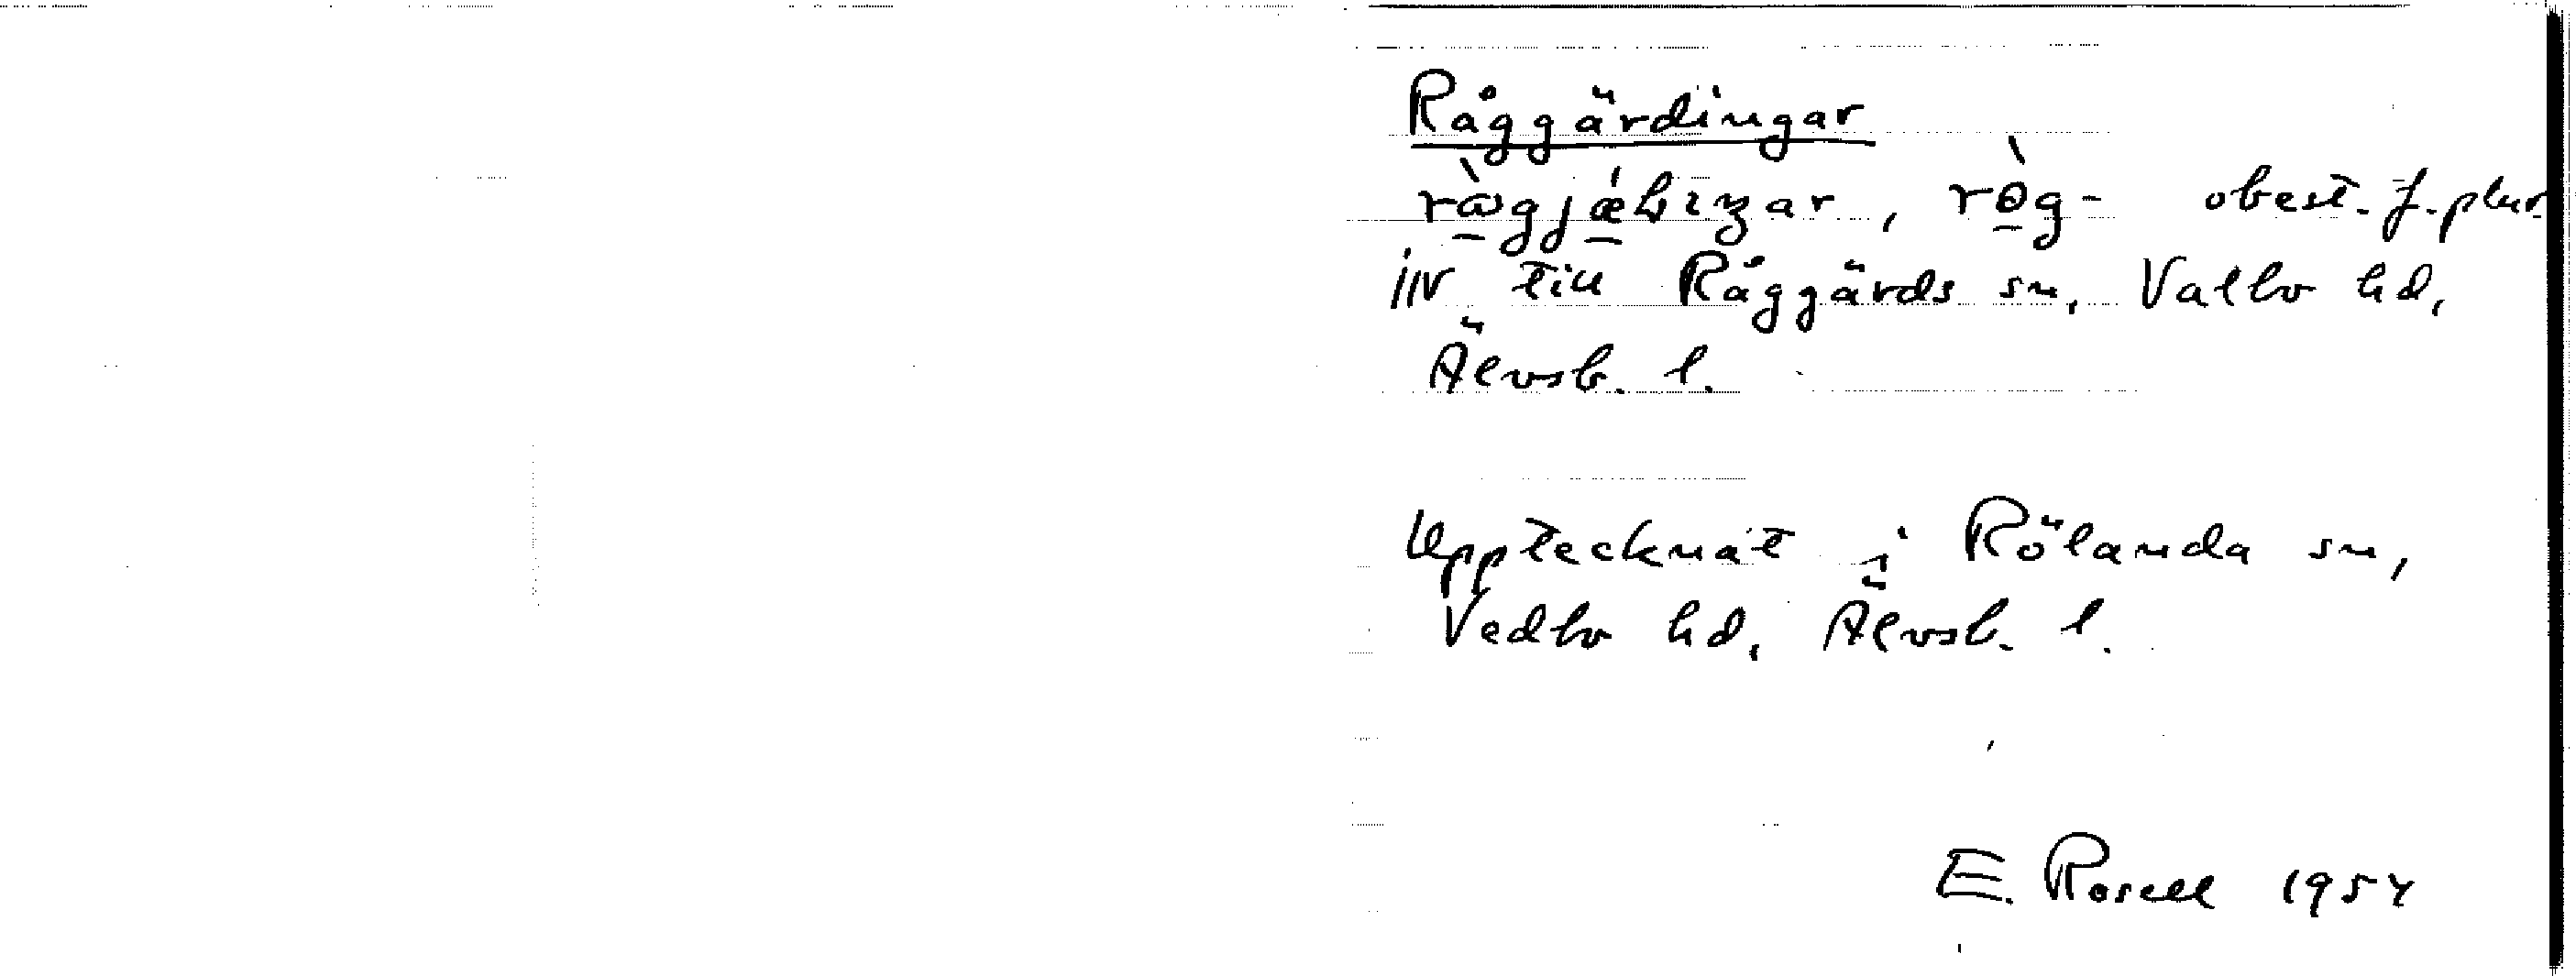 Råggärdingar
obest. f. plur
inv till Råggärds sn, Valbo hd,
Älvsb. l.
Upptecknat i Rölanda sn,
Vedbo hd, Älvsb. l.
E. Rosell 1954